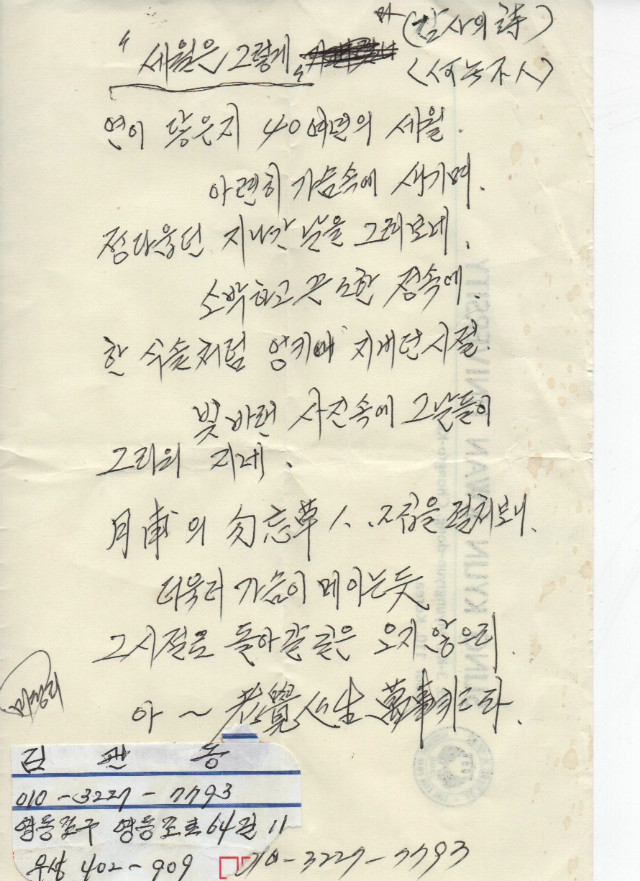 "세월은 그렇게"
(감사의 詩)
<何녹不人>
연이 닿은지 40여년의 세월.
아련히 가슴속에 새기며.
정다웁던 지나간 날을 그려보네.
소박하고 끈끈한 정속에.
한 식솔처럼 엉키여 지내던 시절.
빛바랜 사진속에 그날들이
그리워 지네.
月甫의 勿忘草 人. 시집을 펼쳐보니.
더욱더 가슴이 메이는듯
그시절로 돌아갈 길은 오지 않으리.
아~ 老覺人生 萬事키드라.
미정리
김판동
010-3227-7793
영등포구 영등포로64길 11
우상 402-909
010-3227-7793